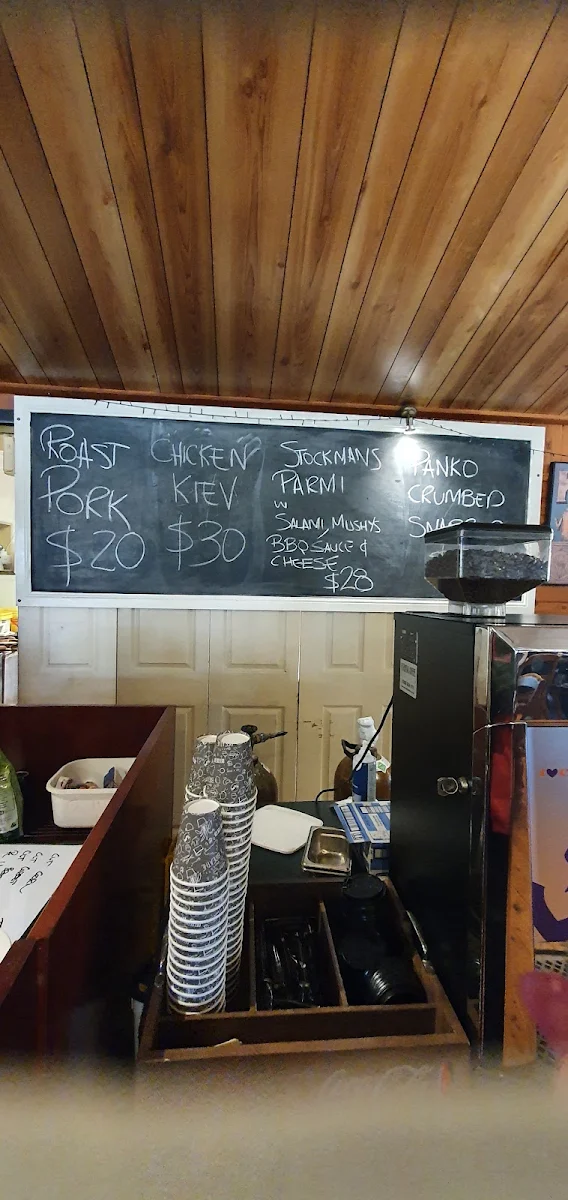 ROAST
PORK
$20
CHICKEN
KIEV
$30
STOCKMANS
PARMI
w
SALAMI, MUSHYS
BBQ SAUCE &
CHEESE
$28
PANKO
CRUMBED